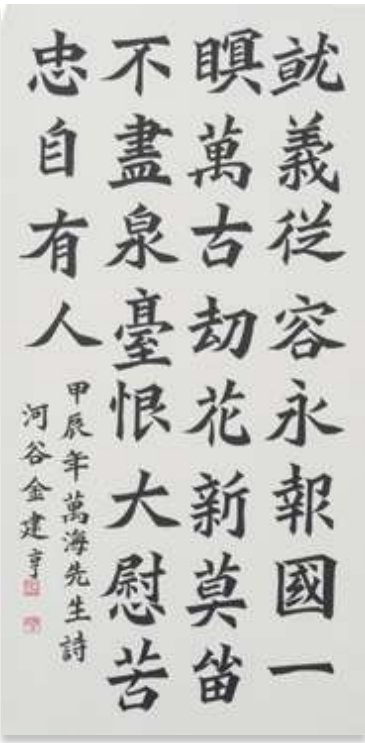 就義従容永報國一
瞑萬古劫花新莫留
不盡泉臺恨大慰苦
忠自有人
甲辰年萬海先生詩
河谷金建亨